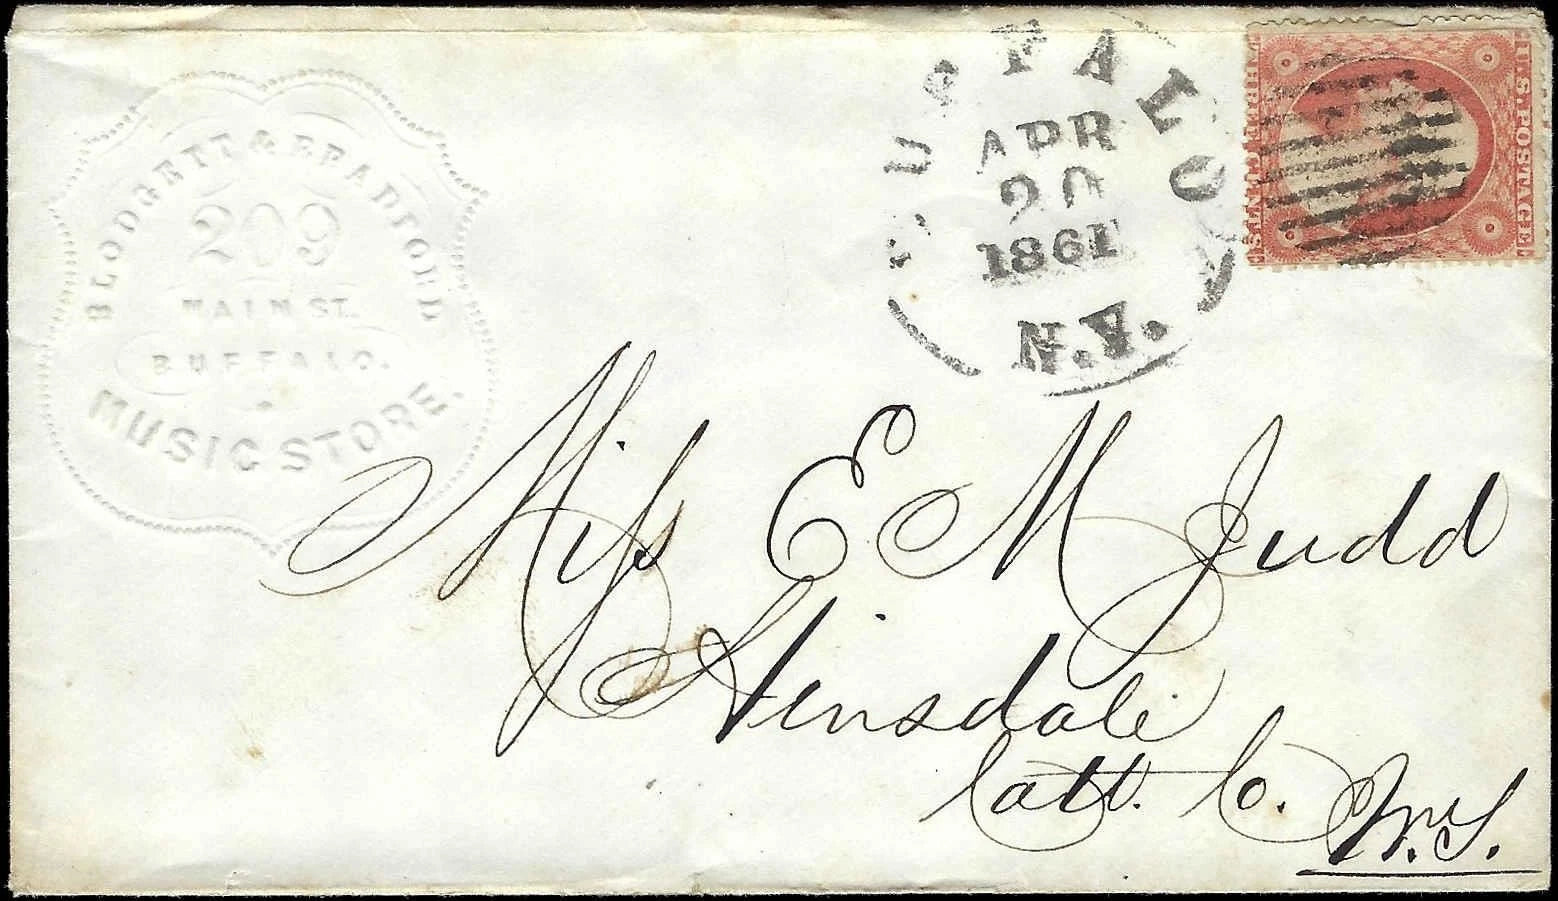 BLODGETT & BRADFORD
209
MAIN ST.
BUFFALO.
MUSIC STORE.
BUFFALO
APR
20
1861
N.Y.
U.S. POSTAGE
THREE CENTS
Miss E M Judd
Hinsdale
Catt. Co.
N.Y.